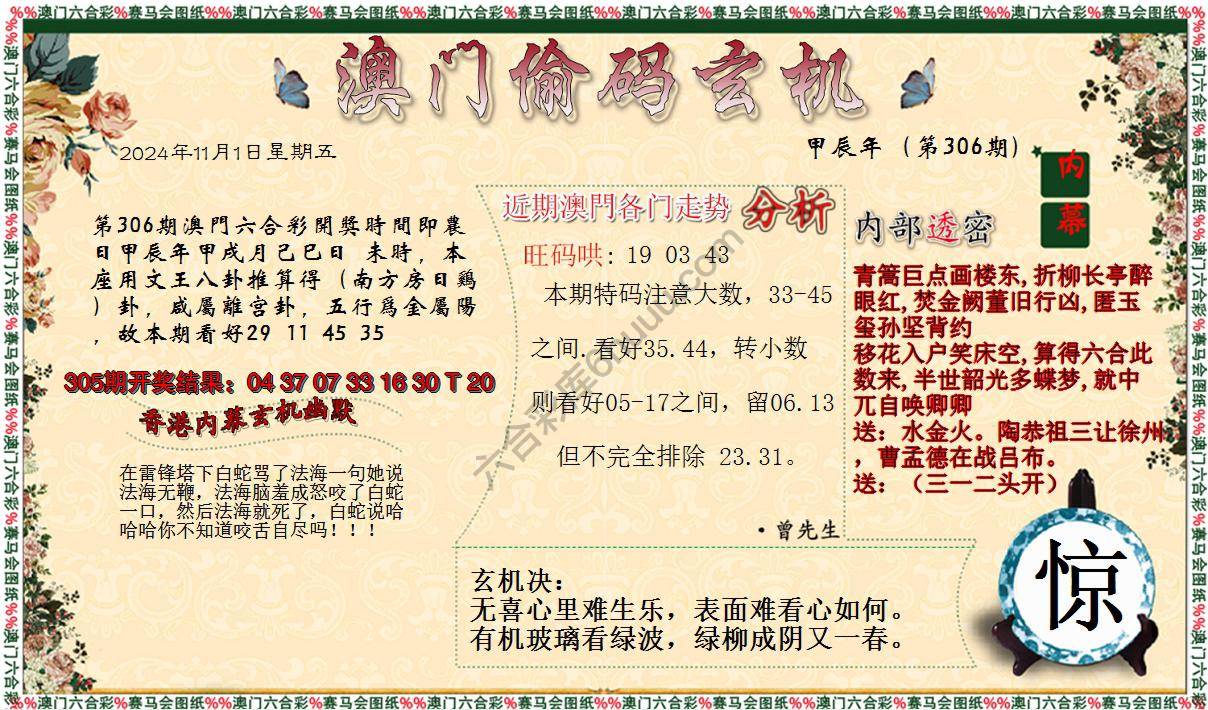 %%澳门六合彩%赛马会图纸%%澳门六合彩%赛马会图纸%%澳门六合彩%赛马会图纸%%澳门六合彩%赛马会图纸%%澳门六合彩%赛马会图纸%%澳门六合彩%赛马会图纸
澳门偷码玄机
2024年11月1日星期五
甲辰年（第306期）
内幕
第306期澳門六合彩開獎時間即農
日甲辰年甲戌月己巳日 未時，本
座用文王八卦推算得（南方房日鷄
）卦，咸屬離宫卦，五行爲金屬陽
，故本期看好29 11 45 35
305期开奖结果：04 37 07 33 16 30 T 20
香港内幕玄机幽默
在雷锋塔下白蛇骂了法海一句她说
法海无鞭，法海脑羞成怒咬了白蛇
一口，然后法海就死了，白蛇说哈
哈哈你不知道咬舌自尽吗！！！
近期澳門各门走势 分析
旺码哄: 19 03 43
本期特码注意大数，33-45
之间.看好35.44，转小数
则看好05-17之间，留06.13
但不完全排除 23.31。
·曾先生
内部透密
青篙巨点画楼东,折柳长亭醉
眼红,焚金阙董旧行凶,匿玉
玺孙坚背约
移花入户笑床空,算得六合此
数来,半世韶光多蝶梦,就中
兀自唤卿卿
送：水金火。陶恭祖三让徐州
，曹孟德在战吕布。
送：（三一二头开）
玄机决：
无喜心里难生乐，表面难看心如何。
有机玻璃看绿波，绿柳成阴又一春。
惊
%%澳门六合彩%赛马会图纸%%澳门六合彩%赛马会图纸%%澳门六合彩%赛马会图纸%%澳门六合彩%赛马会图纸%%澳门六合彩%赛马会图纸%%澳门六合彩%赛马会图纸